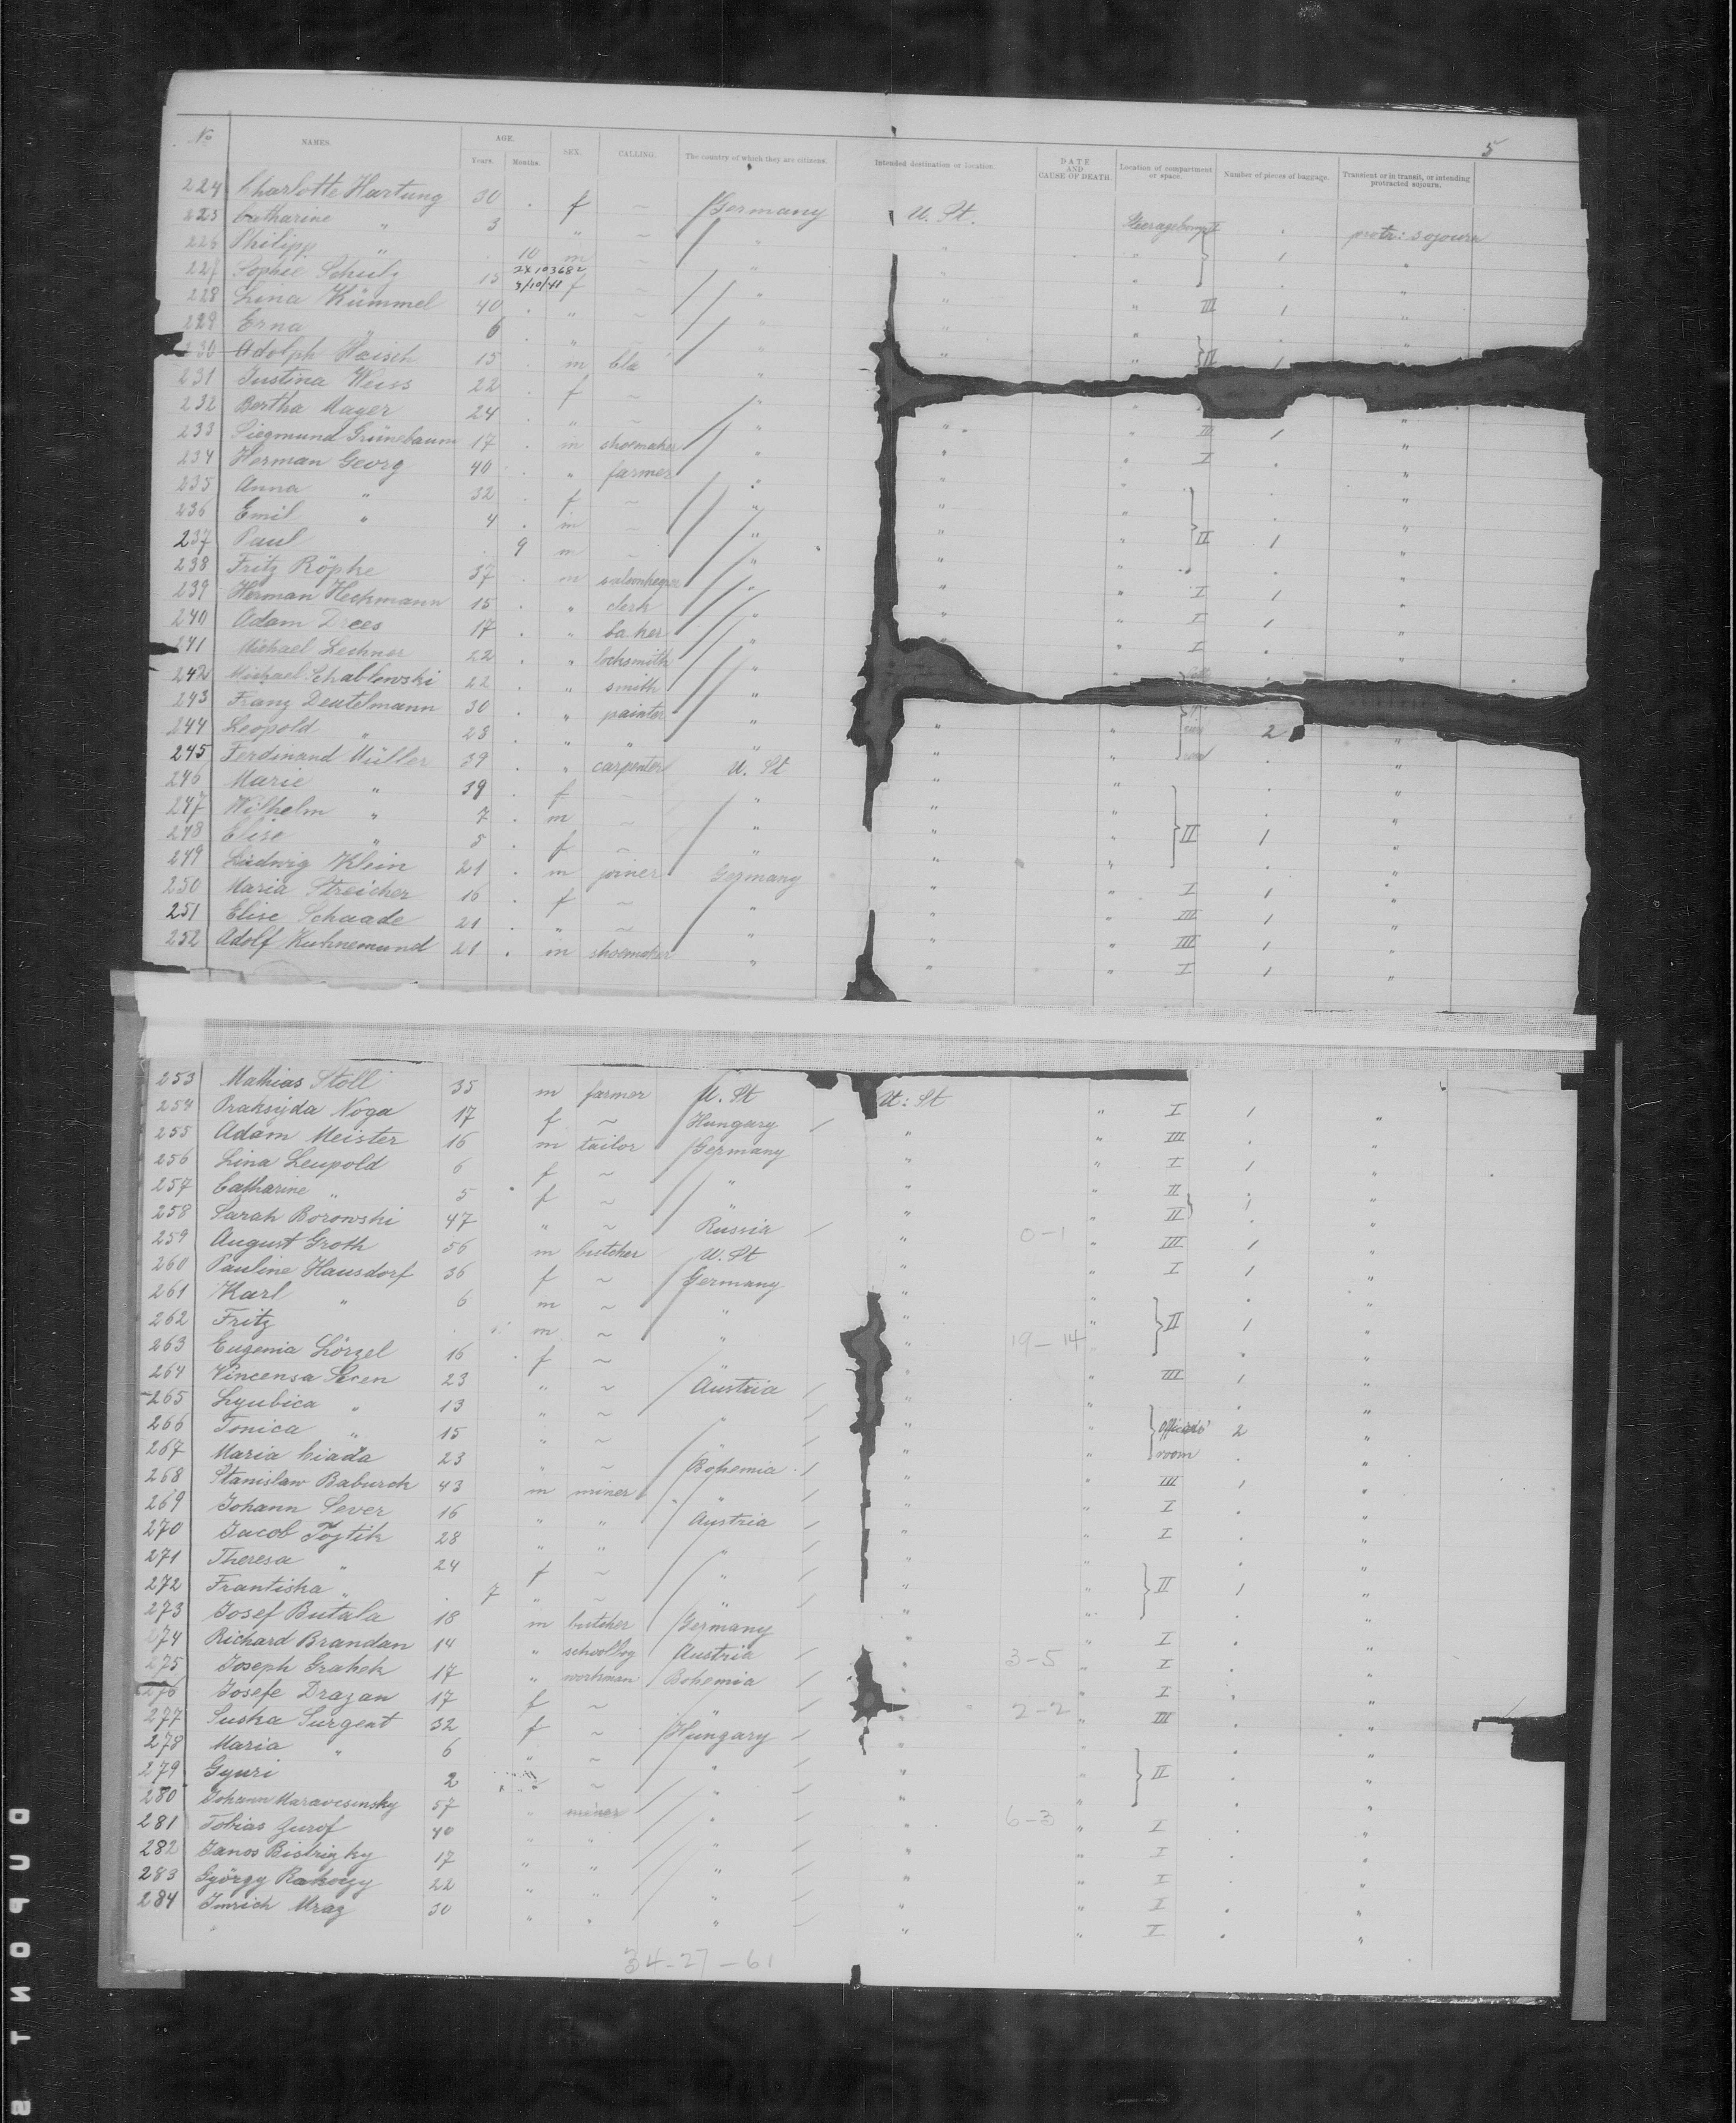 5
No NAMES. AGE. Years. Months. SEX. CALLING. The country of which they are citizens. Intended destination or location. DATE AND CAUSE OF DEATH. Location of compartment or space. Number of pieces of baggage. Transient or in transit, or intending protracted sojourn.
224 Charlotte Hartung 30 . f ~ Germany U. St. protr: sojourn
225 Catharine " 3 " ~ " "
226 Philipp " 10 m ~ " " 1 "
2X103682
3/10/41
227 Sophie Schulz 15 f ~ " " III 1 "
228 Lina Kümmel 40 . " ~ " " "
229 Erna " 6 . " ~ " " II 1
230 Adolph Heisch 15 . m "
231 Justina Weiss 22 . f ~ "
232 Bertha Mayer 24 . " ~ " " III 1 "
233 Siegmund Grünebaum 17 . m shoemaker " " I . "
234 Herman Georg 40 . " farmer " " "
235 Anna " 32 . f ~ " " "
236 Emil " 4 . m ~ " " II 1 "
237 Paul 9 m ~ " " "
238 Fritz Röpke 37 . m " " I 1 "
239 Herman Heckmann 15 . " clerk " " I 1 "
240 Adam Drees 17 . " baker " " I . "
241 Michael Lechner 22 . " locksmith "
242 Michael Schablowski 22 . " smith "
243 Franz Deutelmann 30 . " painter " " 2 "
244 Leopold " 23 . " " " " "
245 Ferdinand Müller 39 . " carpenter U. St " . "
246 Marie " 39 . f ~ " " . "
247 Wilhelm " 7 . m ~ " " II 1 "
248 Elise " 5 . f ~ " " . "
249 Ludwig Klein 21 . m joiner Germany " I 1 "
250 Maria Streicher 16 . f ~ " " III 1 "
251 Elise Schaade 21 . " ~ " " III 1 "
252 Adolf Kuhnemund 21 . m shoemaker " " I 1 "
253 Mathias Stoll 35 m farmer U. St U: St " I 1 "
254 Praksyda Noga 17 f ~ Hungary " " III . "
255 Adam Meister 16 m tailor Germany " " I 1 "
256 Lina Leupold 6 f ~ " " " II "
257 Catharine " 5 f ~ " " " II 1 "
258 Sarah Borowski 47 " ~ Russia " 0-1 " III 1 "
259 August Groth 56 m butcher U. St " " I 1 "
260 Pauline Hausdorf 36 f ~ Germany " " . "
261 Karl " 6 m ~ " " " II 1 "
262 Fritz m ~ " " 19-14 " . "
263 Eugenia Lörzel 16 . f ~ " " " III 1 "
264 Vincensa 23 " ~ Austria " " . "
265 Lyubica " 13 " ~ " " " officers' 2 "
266 Tonica " 15 " ~ " " " room . "
267 Maria 23 " ~ Bohemia " " III 1 "
268 Stanislaw Baburek 43 m miner " " " I . "
269 Johann Sever 16 " " Austria " " I . "
270 Jacob 28 " " " " " . "
271 Theresa " 24 f ~ " " " II 1 "
272 Frantiska " 7 " ~ " " " . "
273 Josef Butala 18 m butcher Germany " " I . "
274 Richard Brandan 14 " schoolboy Austria " 3-5 " I . "
275 Joseph Grahek 17 " workman Bohemia " " I . "
276 Josefe Drazan 17 f ~ " " 2-2 " III . "
277 Suska Surgent 32 f ~ Hungary " " . "
278 Maria " 6 " ~ " " " II . "
279 Gyuri 2 ~ " " " . "
280 Johann 57 " miner " " 6-3 " I . "
281 Tobias 40 " " " " " I . "
282 Janos 17 " " " " " I . "
283 György 22 " " " " " I . "
284 Imrich Mraz 30 " " " " " I . "
34-27-61